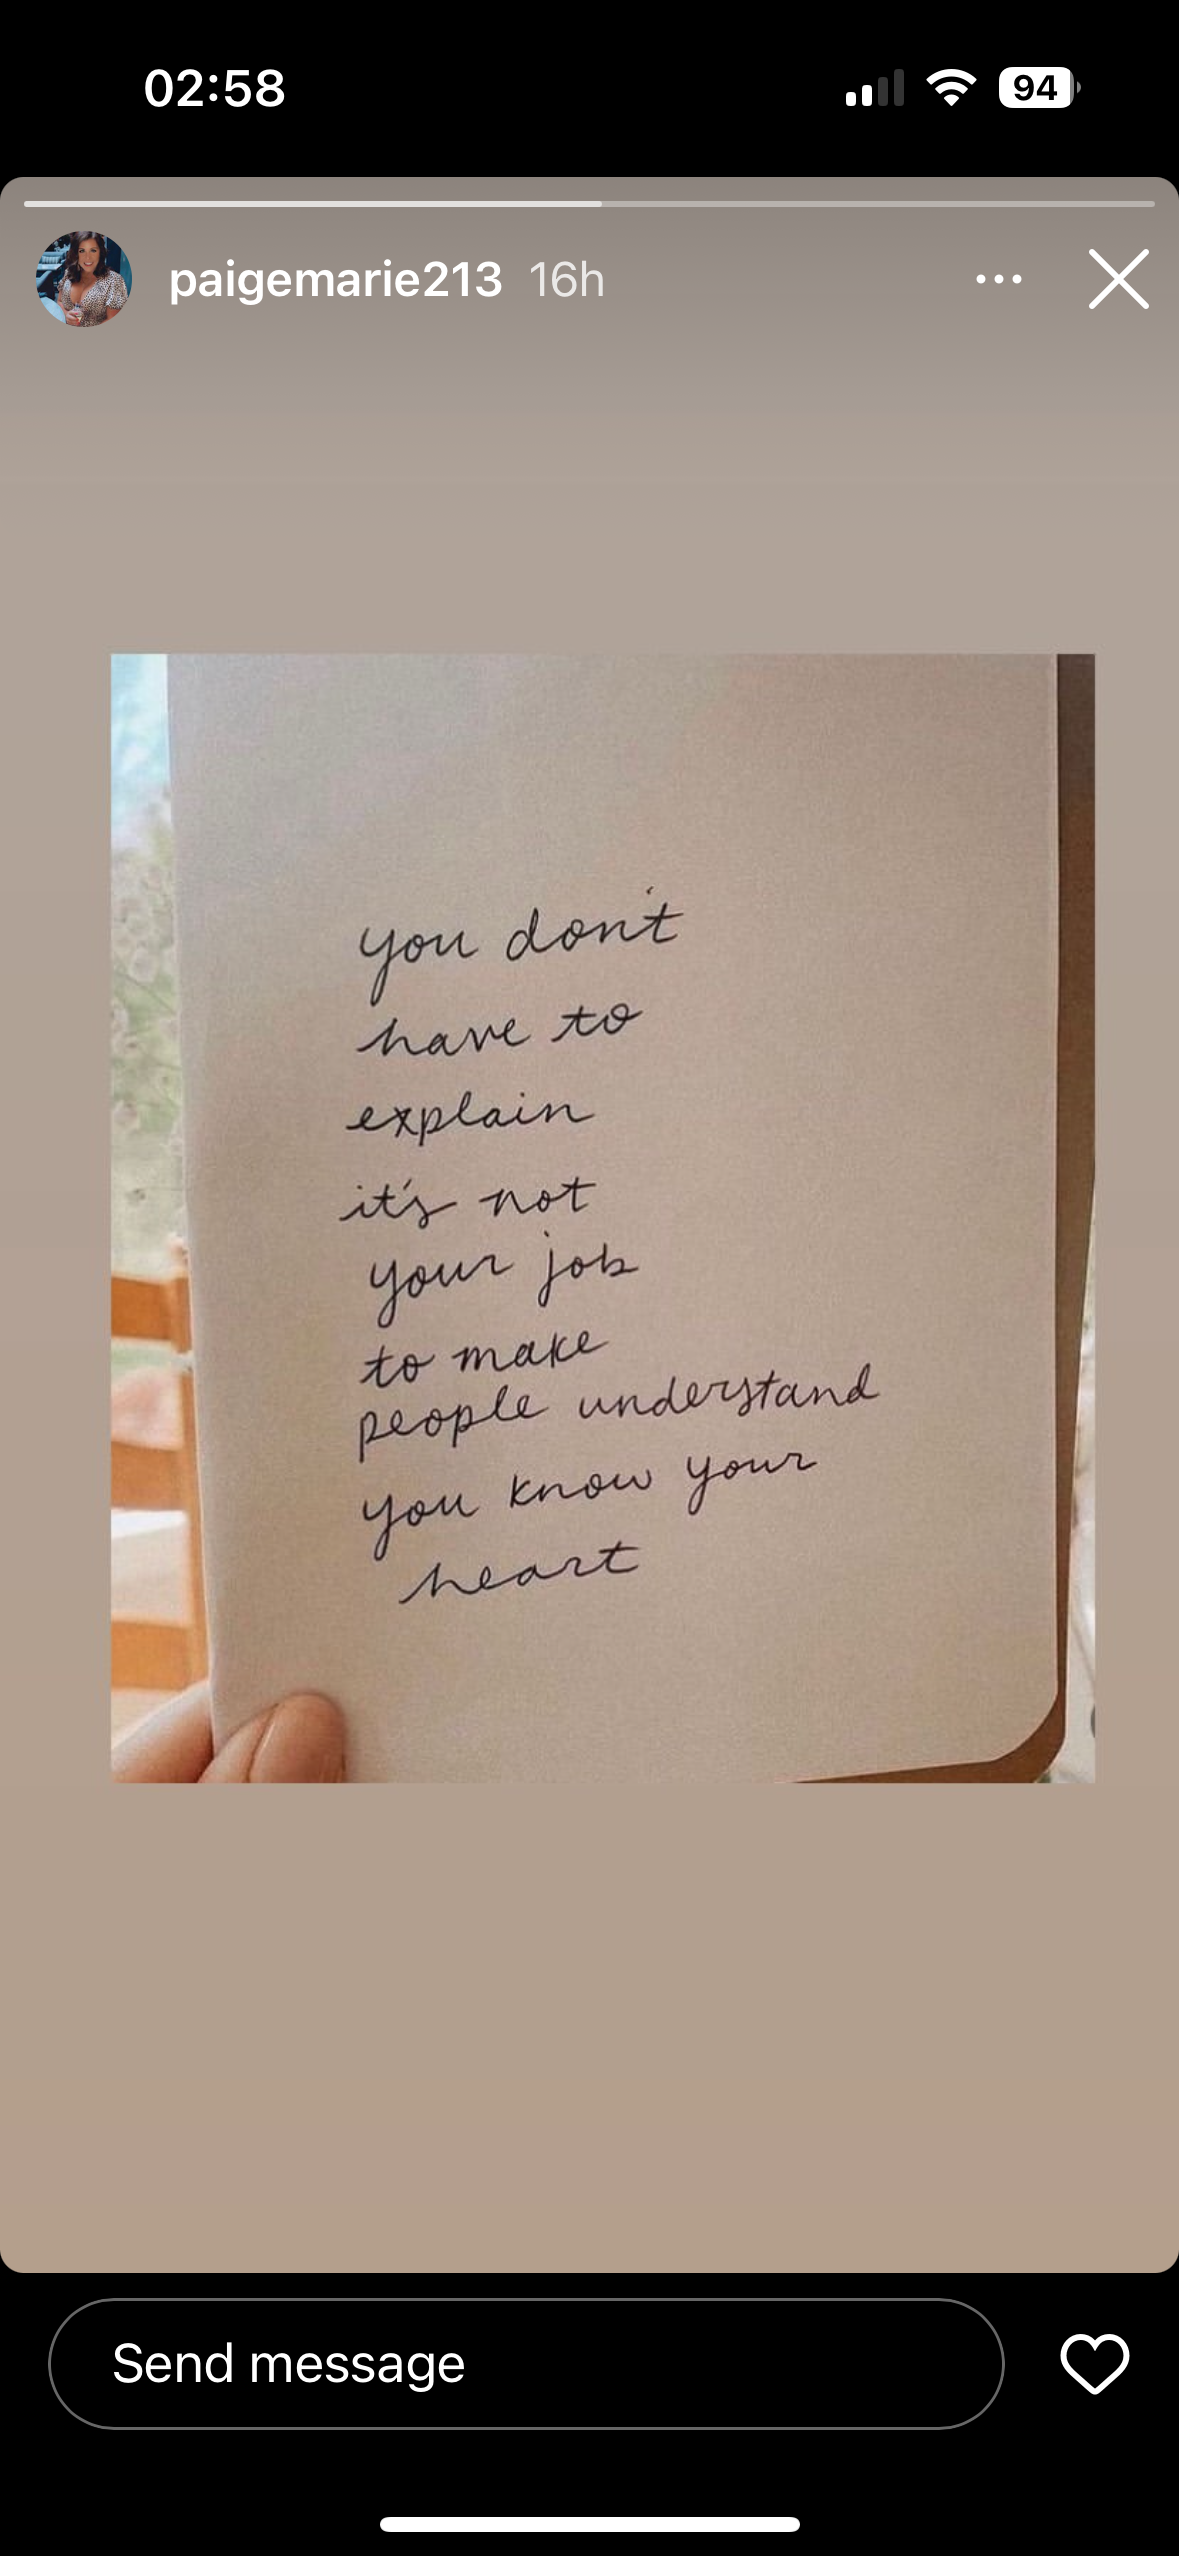 02:58
94
paigemarie213 16h
you don't
have to
explain
it's not
your job
to make
people understand
you know your
heart
Send message